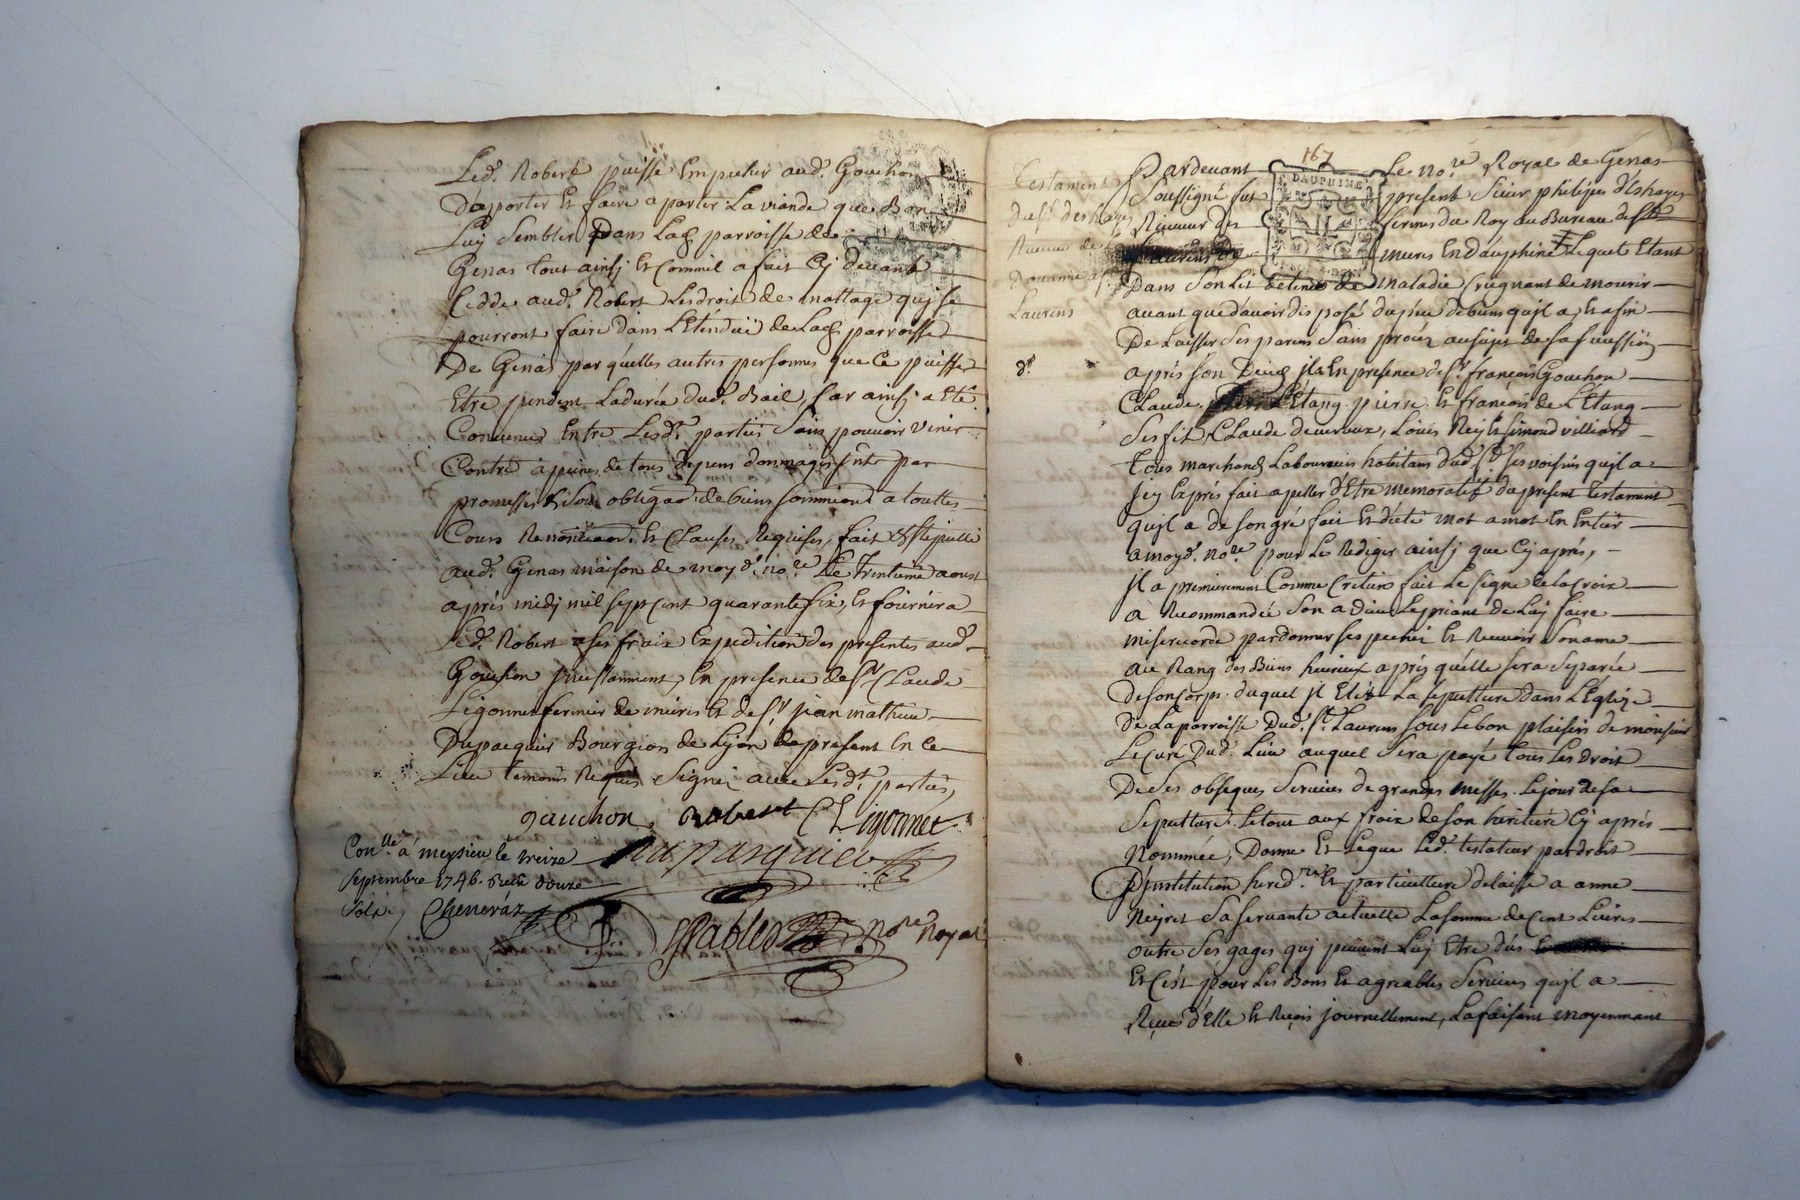 Led.t Robert puisse Empecher aud.t Gouchon
D'aporter Et faire aporter La viande que Bon
Luy Semblera Dans Lad.e parroisse de
Genas tout ainsy Et Comm'il a fait Cy devant
Cedde aud.t Robert Les droit de
pourront faire dans L'Etendüe de Lad.e parroisse
De Genas par quelles autres personnes que Ce puisse
Etre pendent La durée dud.t Bail, Car ainsy a Eté
Convenus Entre Lesd.t parties Sans pouvoir venir
Contre a peines de tous depens dommages par
promesses obliga.on de biens a touttes
Cours Et Clauses Requises, fait Et Stipullé
aud.t Genas maison de moyd.t no.re Le Trentieme aoust
aprés midy mil Sept Cent quarante six, Et fournira
Led.t Robert a ses fraix Expedition des presentes aud.t
Gouchon En presence de S.r Claude
Ligonnet fermier de miéris Et de S.r jean mathieu
Duparquier Bourgeois de Lyon de present En Ce
Lieu temoins Requis Signé avec Lesd.t parties,
gauchon. Robert C Ligonnet
Duparquier
Con.llé a meysieu le treize
Septembre 1746. Reçu douze
Sols Chenevaz
no.re Royal
167
DAUPHINE
Testament
du S.r deshayes
de
Douanne a S.t
Laurens
Pardevant Le no.re Royal de Genas
Soussigné fut present Sieur philipes D'Eshayes
Receveur des fermes du Roy au Bureau de S.t
Laurens de mures En dauphiné Lequel Etant
Dans Son Lit detenu de maladie Creignant de mourir
avant que d'avoir disposé du peu de biens qu'jl a, Et afin
De Laisser Ses parens Sans proces au sujet de sa succession
d.t
aprés son Deces jl a En presence de S.r françois Gouchon
Claude L'Etang pierre Et françois de L'Etang
Ses fils, Claude deveroux, Loüis Rey Et simond villiard
Tous marchands Laboureurs habitans dud. S.t ses voisins qu'jl a
jcy Exprés fait apeller d'Etre memoratif du present testament
qu'jl a de son gré fait Et dicté mot a mot En Entier
a moyd.t no.re pour Le Rediger ainsy que Cy aprés,
jl a premierement Comme Cretien fait Le Signe de La Croix
a Recommandée Son a Dieu Le priant de Luy faire
misericorde pardonner ses pechez Et Recevoir Son ame
au Rang des Biens heureux aprés qu'elle sera Separée
De son Corps. duquel jl Elit La sepulture dans L'Eglize
De La parroisse Dud. S.t Laurens sous Le bon plaisir de monsieur
Le Curé Dud.t Lieu auquel Sera payé tous Les droit
De Ses obseques Services de grandes messes. Le jour de sa
Sepulture. Le tout aux fraix de son heritiere Cy aprés
Nommée, Donne Et Legue Led.t testateur par droit
D'Institution hered.re Et particulliere delaisse a anne
Neyret Sa servante actuelle La somme de Cent Livres
outre Ses gages qui peuvent Luy Etre dûs
Et C'est pour Les Bons Et agreables Services qu'jl a
Reçu d'Elle Et Reçois journellement, La faisant moyennant